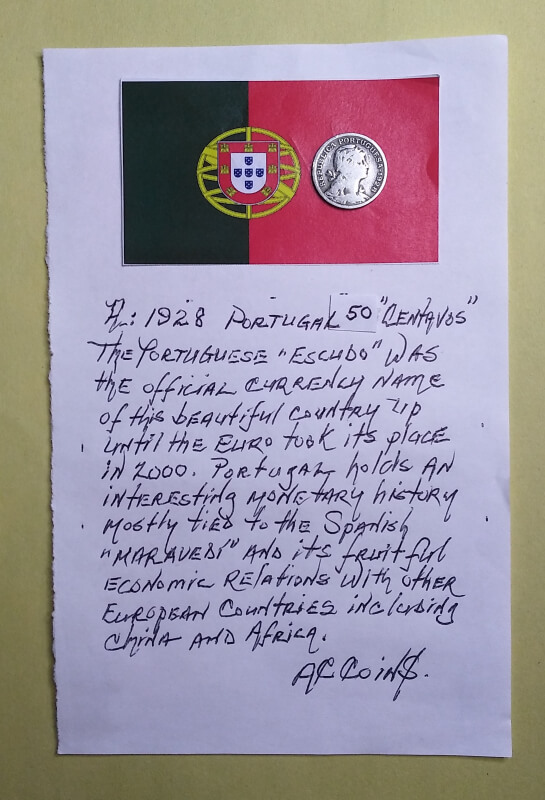 REPUBLICA PORTUGUESA · 1928
R: 1928 PORTUGAL 50 "CENTAVOS"
THE PORTUGUESE "ESCUDO" WAS
the official CURRENCY NAME
of this beautiful COUNTRY UP
UNTIL the EURO took its place
IN 2000. PORTUGAL holds AN
INTERESTING MONETARY history
mostly tied to the Spanish
"MARAVEDI" AND its fruitful
ECONOMIC RELATIONS WITH other
EUROPEAN COUNTRIES including
CHINA AND AfRICA.
AC COIN$.